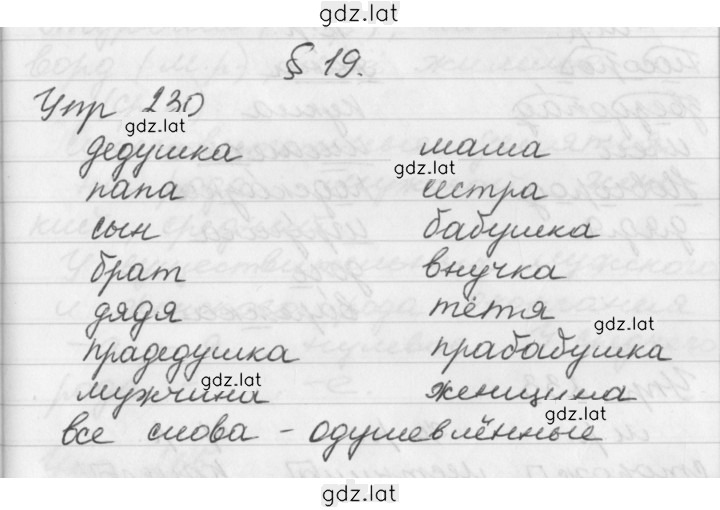 gdz.lat
§ 19.
Упр 230
gdz.lat
дедушка мама
gdz.lat
папа сестра
сын бабушка
брат внучка
дядя тётя
gdz.lat
прадедушка прабабушка
gdz.lat
мужчина женщина
gdz.lat
все слова - одушевлённые
gdz.lat